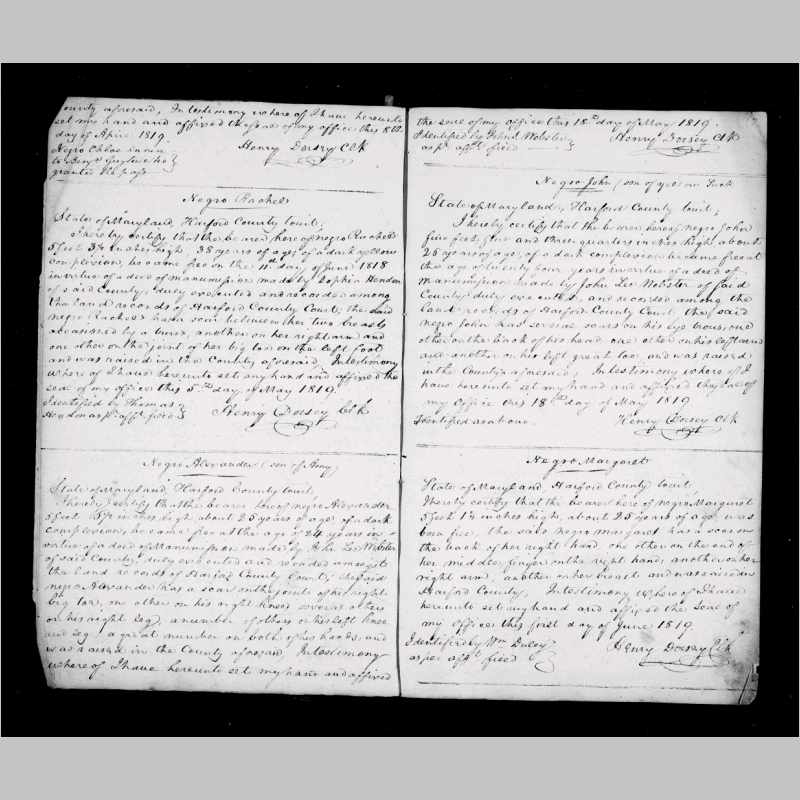 County aforesaid, In testimony where of I have hereunto
set my hand and affixed the seal of my office this 8th
day of April 1819.
Negro Chloe
to Benjn
granted
Henry Dorsey Clk
Negro Rachel
State of Maryland, Harford County Court,
I hereby certify that the bearer here of negro Rachel
5 feet 3¾ inches high 38 years of age of a dark yellow
complexion, became free on the 11th day of June 1818
in virtue of a deed of manumission made by Sophia Hendon
of said County, duly executed and recorded among
the land records of Harford County Court, the said
negro Rachel has a scar between her two breasts
occasioned by a burn, another on her right arm and
one other on the joint of her big toe on the left foot
and was raised in the County aforesaid, In testimony
where of I have hereunto set my hand and affixed the
seal of my office this 5th day of May 1819.
Identified by Thomas
Hendon as pr. afft. filed
Henry Dorsey Clk
Negro Alexander (son of Amy)
State of Maryland, Harford County Court,
I hereby certify that the bearer hereof negro Alexander
5 feet inches high about 25 years of age of a dark
complexion, became free at the age of 24 years in
virtue of a deed of Manumission made by John Lee Webster
of said County, duly executed and recorded amongst
the land records of Harford County Court, the said
negro Alexander has a scar on the joint of his right
big toe, one other on his right knee, several others
on his right leg, a number of others on his left knee
and leg, a great number on both of his hands, and
was raised in the County aforesaid, In testimony
where of I have hereunto set my hand and affixed
the seal of my office this 18th day of May 1819.
Identified by John L Webster
as pr afft. filed
Henry Dorsey Clk
Negro John (son of
State of Maryland, Harford County Court,
I hereby certify that the bearer hereof negro John
five feet, five and three quarters inches high about
28 years of age, of a dark complexion became free at
the age of twenty four years in virtue of a deed of
manumission made by John Lee Webster of said
County duly executed, and recorded among the
land records of Harford County Court the said
negro John has several scars on his eye brows, one
other on the back of his hand one other on his left arm
and another on his left great toe and was raised
in the County aforesaid, In testimony where of I
have hereunto set my hand and affixed the seal of
my Office this 18th day of May 1819
Identified as above.
Henry Dorsey Clk
Negro Margaret
State of Maryland Harford County Court,
I hereby certify that the bearer here of negro Margaret
5 feet 1¾ inches high, about 25 years of age was
born free, the said negro margaret has a scar on
the back of her right hand one other on the end of
her middle finger on the right hand, another on her
right arm, another on her breast and was raised in
Harford County, In testimony where of I have
hereunto set my hand and affixed the Seal of
my Office this first day of June 1819.
Identified by Wm Duley
as per afft. filed
Henry Dorsey Clk